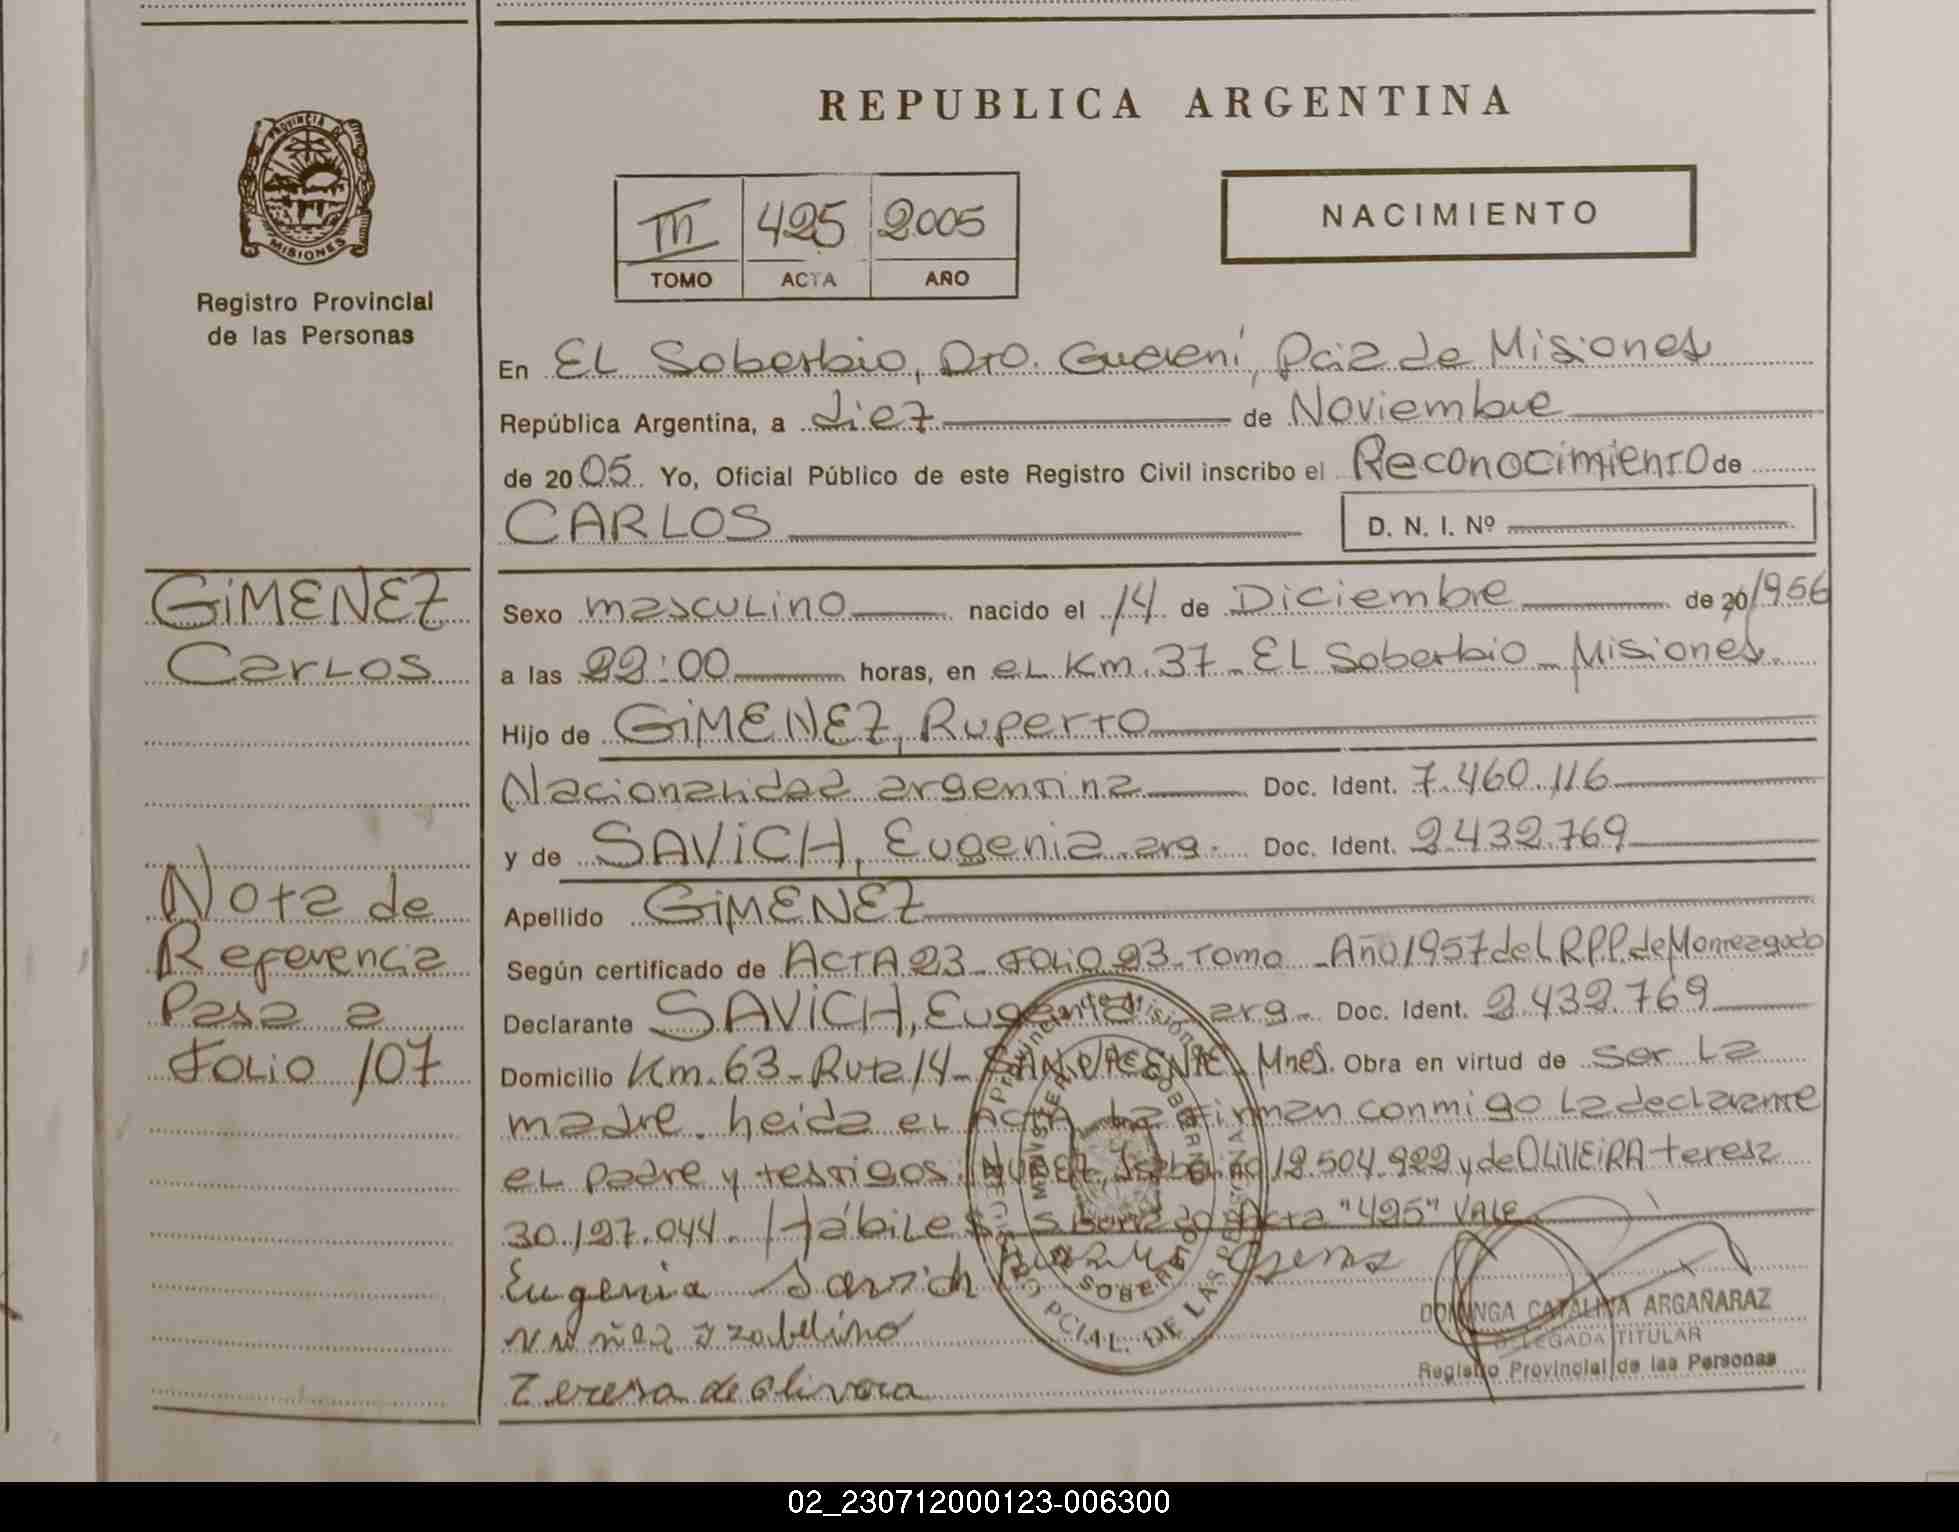 REPUBLICA ARGENTINA
PROVINCIA DE
MISIONES
Registro Provincial
de las Personas
III 425 2005
TOMO ACTA AÑO
NACIMIENTO
En EL Soberbio, Dto. Guaraní, Pcia de Misiones
República Argentina, a diez de Noviembre
de 2005. Yo, Oficial Público de este Registro Civil inscribo el Reconocimiento de
CARLOS D. N. I. Nº
GiMENEZ
Carlos
Sexo masculino nacido el 14 de Diciembre de 20/1956
a las 22:00 horas, en eL Km. 37 - EL Soberbio - Misiones.
Hijo de GiMENEZ, Ruperto
Nacionalidad argentina Doc. Ident. 7.460.116
y de SAViCH, Eugenia arg. Doc. Ident. 2.432.769
Apellido GiMENEZ
Nota de
Referencia
Pasa a
Folio 107
Según certificado de ACTA 23 - Folio 23 - Tomo - Año 1957 del R.P.P. de Monteagudo
Declarante SAViCH, Eugenia arg. Doc. Ident. 2.432.769
Domicilio Km. 63 - Ruta 14 - SAN VICENTE, Mnes. Obra en virtud de ser La
madre. heida eL ACTA La firman conmigo La declarante
eL padre y testigos: 12.504.922 y de OLiVEiRA teresa
30.127.044. Hábiles. Acta "425" VALE
Eugenia Savich
Teresa de Olivera
DOMINGA CATALINA ARGAÑARAZ
DELEGADA TITULAR
Registro Provincial de las Personas
Provincia de Misiones
SOBERBIO
PCIAL. DE LAS
02_230712000123-006300